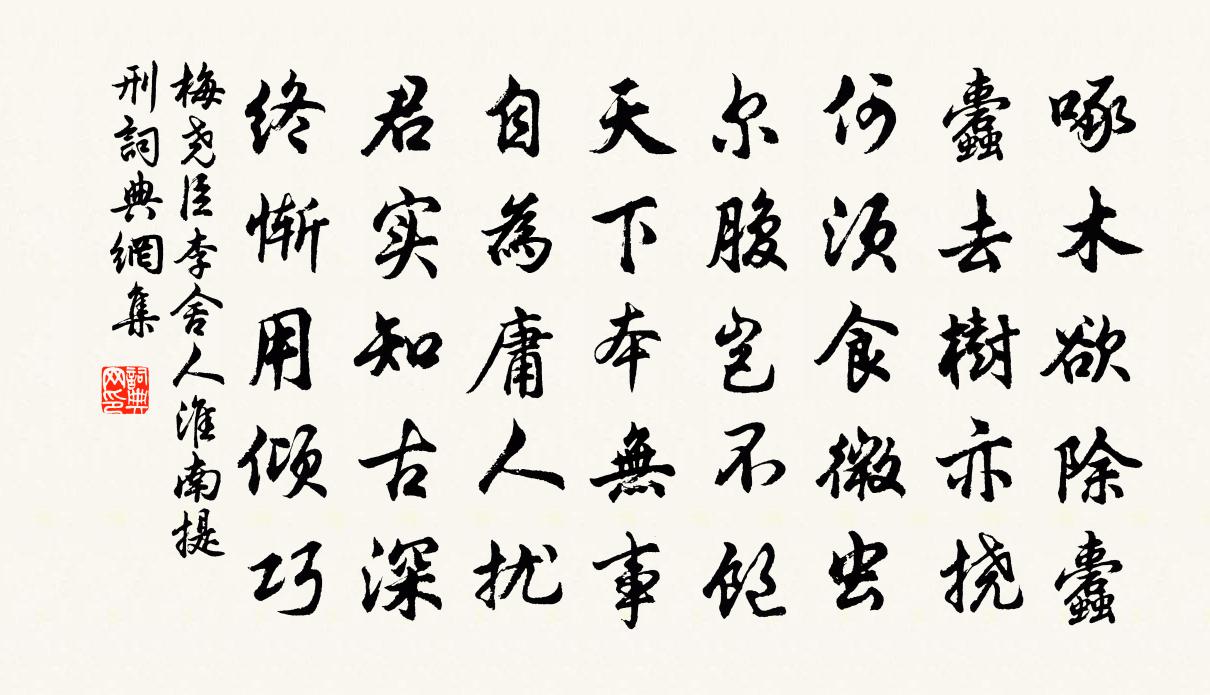 啄木欲除蠹
蠹去樹亦撓
何須食微虫
尔腹岂不飽
天下本無事
自為庸人扰
君实知古深
终慚用倾巧
梅尧臣李舍人淮南提
刑詞典網集
詞典网印